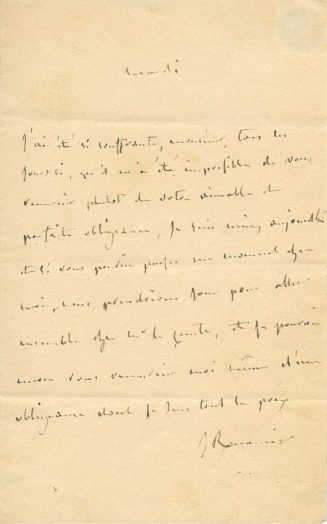 mardi
J'ai été si souffrante, monsieur, tous les
jours ci, qu'il m'a été impossible de vous
remercier plutot de votre aimable et
parfaite obligeance, Je suis mieux aujourd'hui
et si vous pouviez passer un moment chez
moi, nous prendrions jour pour aller
ensemble chez mr de, et je pourrai
vous remercier moi même d'une
obligeance dont je sens tout le prix